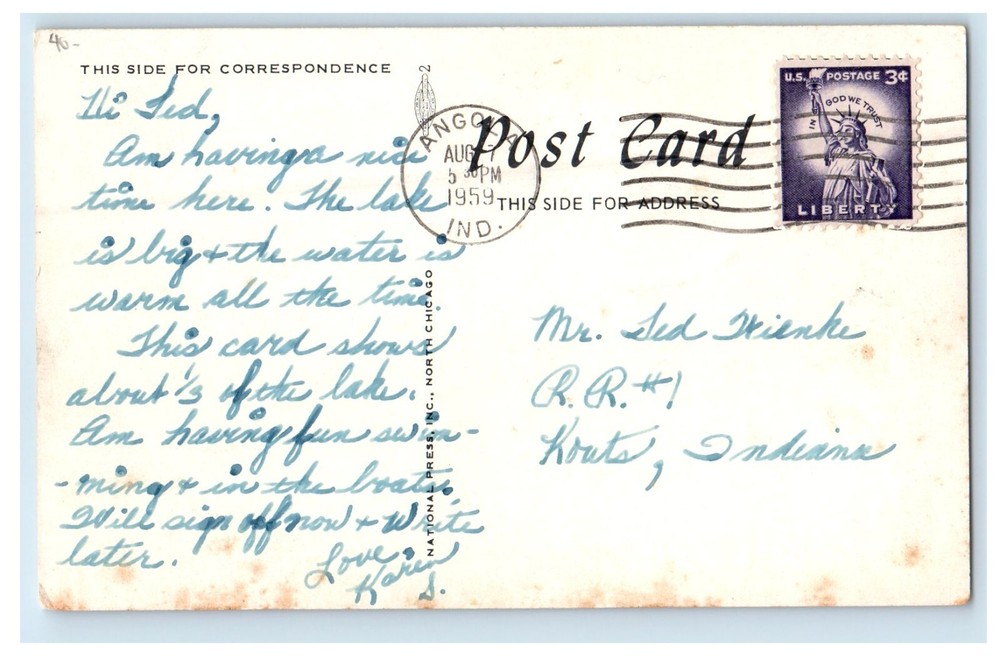 40-
THIS SIDE FOR CORRESPONDENCE
Hi Ted,
Am having a nice
time here. The lake
is big & the water is
warm all the time.
This card shows
about 1/3 of the lake.
Am having fun swim-
-ming & in the boats.
Will sign off now & write
later.
Love,
Karen
S.
2
NATIONAL PRESS, INC., NORTH CHICAGO
ANGOLA
AUG 7
5 30 PM
1959
IND.
Post Card
THIS SIDE FOR ADDRESS
U.S. POSTAGE 3¢
IN GOD WE TRUST
LIBERTY
Mr. Ted Wienke
R. R. #1
Kouts, Indiana